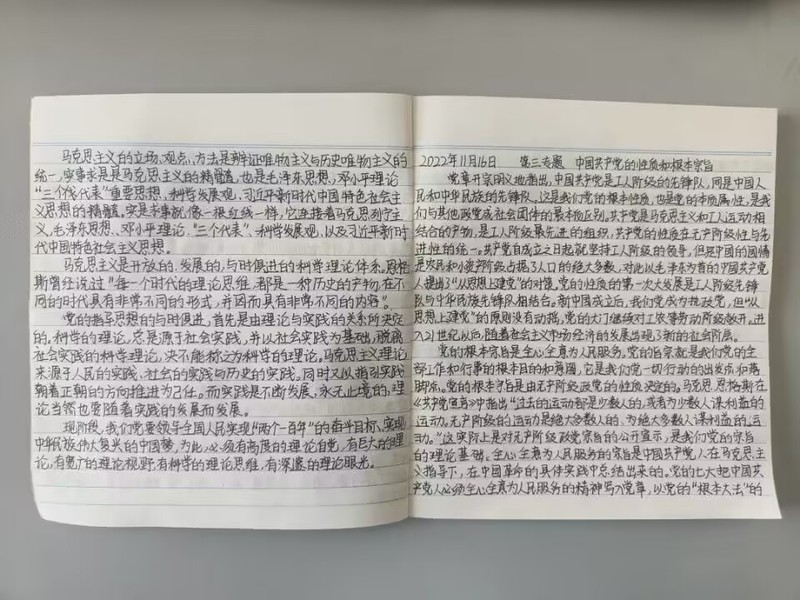 马克思主义的立场、观点、方法是辨证唯物主义与历史唯物主义的
统一,实事求是是马克思主义的精髓,也是毛泽东思想,邓小平理论
“三个代表”重要思想、科学发展观、习近平新时代中国特色社会主
义思想的精髓,实是求事就像一根红线一样,它连接着马克思列宁主
义、毛泽东思想、邓小平理论、“三个代表”、科学发展观,以及习近平新时
代中国特色社会主义思想。
马克思主义是开放的、发展的、与时俱进的科学理论体系。恩格
斯曾经说过“每一个时代的理论思维,都是一种历史的产物,在不
同的时代具有非常不同的形式,并因而具有非常不同的内容”。
党的指导思想的与时俱进,首先是由理论与实践的关系所决定
的。科学的理论,总是源于社会实践,并以社会实践为基础,脱离
社会实践的科学理论,决不能称之为科学的理论。马克思主义理论
来源于人民的实践、社会的实践与历史的实践,同时又以指引实践
朝着正朝的方向推进为己任。而实践是不断发展、永无止境的,理
论当然也要随着实践的发展而发展。
现阶段,我们党要领导全国人民实现“两个一百年”的奋斗目标,实现
中华民族伟大复兴的中国梦,为此,必须有高度的理论自觉,有巨大的理
论,有宽广的理论视野,有科学的理论思维,有深邃的理论眼光。
2022年11月16日 第三专题 中国共产党的性质和根本宗旨
党章开宗明义地指出,中国共产党是工人阶级的先锋队,同是中国人
民和中华民族的先锋队。这是我们党的根本性质,也是党的本质属性,是我
们与其他政党或社会团体的最本质区别。共产党是马克思主义和工人运动相
结合的产物,是工人阶级最先进的组织,共产党的性质在无产阶级性与先
进性的统一。共产党自成立之日起就坚持工人阶级的领导,但是中国的国情
是农民和小资产阶级占据了人口的绝大多数,对此以毛泽东为首的中国共产党
人提出了“从思想上建党”的对馍,党的性质的第一次大发展是工人阶级先锋
队与中华民族先锋队相结合。新中国成立后,我们党成为执政党,但“从
思想上建党”的原则没有动摇,党的大门继续对工农等劳动阶级敞开。进
入21世纪以后,随着社会主义市场经济的发展出现了新的社会阶层。
党的根本宗旨是全心全意为人民服务。党的旨宗就是我们党的全
部工作和行事的根本目的和意图,它是我们党一切行动的出发点和落
脚点。党的根本宗旨是由无产阶级政党的性质决定的。马克思、恩格斯在
《共产党宣言》中指出“过去的运动都是少数人的,或者为少数人谋利益的
运动。无产阶级的运动是绝大多数人的、为绝大多数人谋利益的运
动。”这实际上是对无产阶级政党宗旨的公开宣示,是我们党的宗旨
的理论基础。全心全意为人民服务的宗旨是中国共产党人在马克思主
义指导下,在中国革命的具体实践中总结出来的。党的七大把中国共
产党人必须全心全意为人民服务的精神写入党章,以党的“根本大法”的